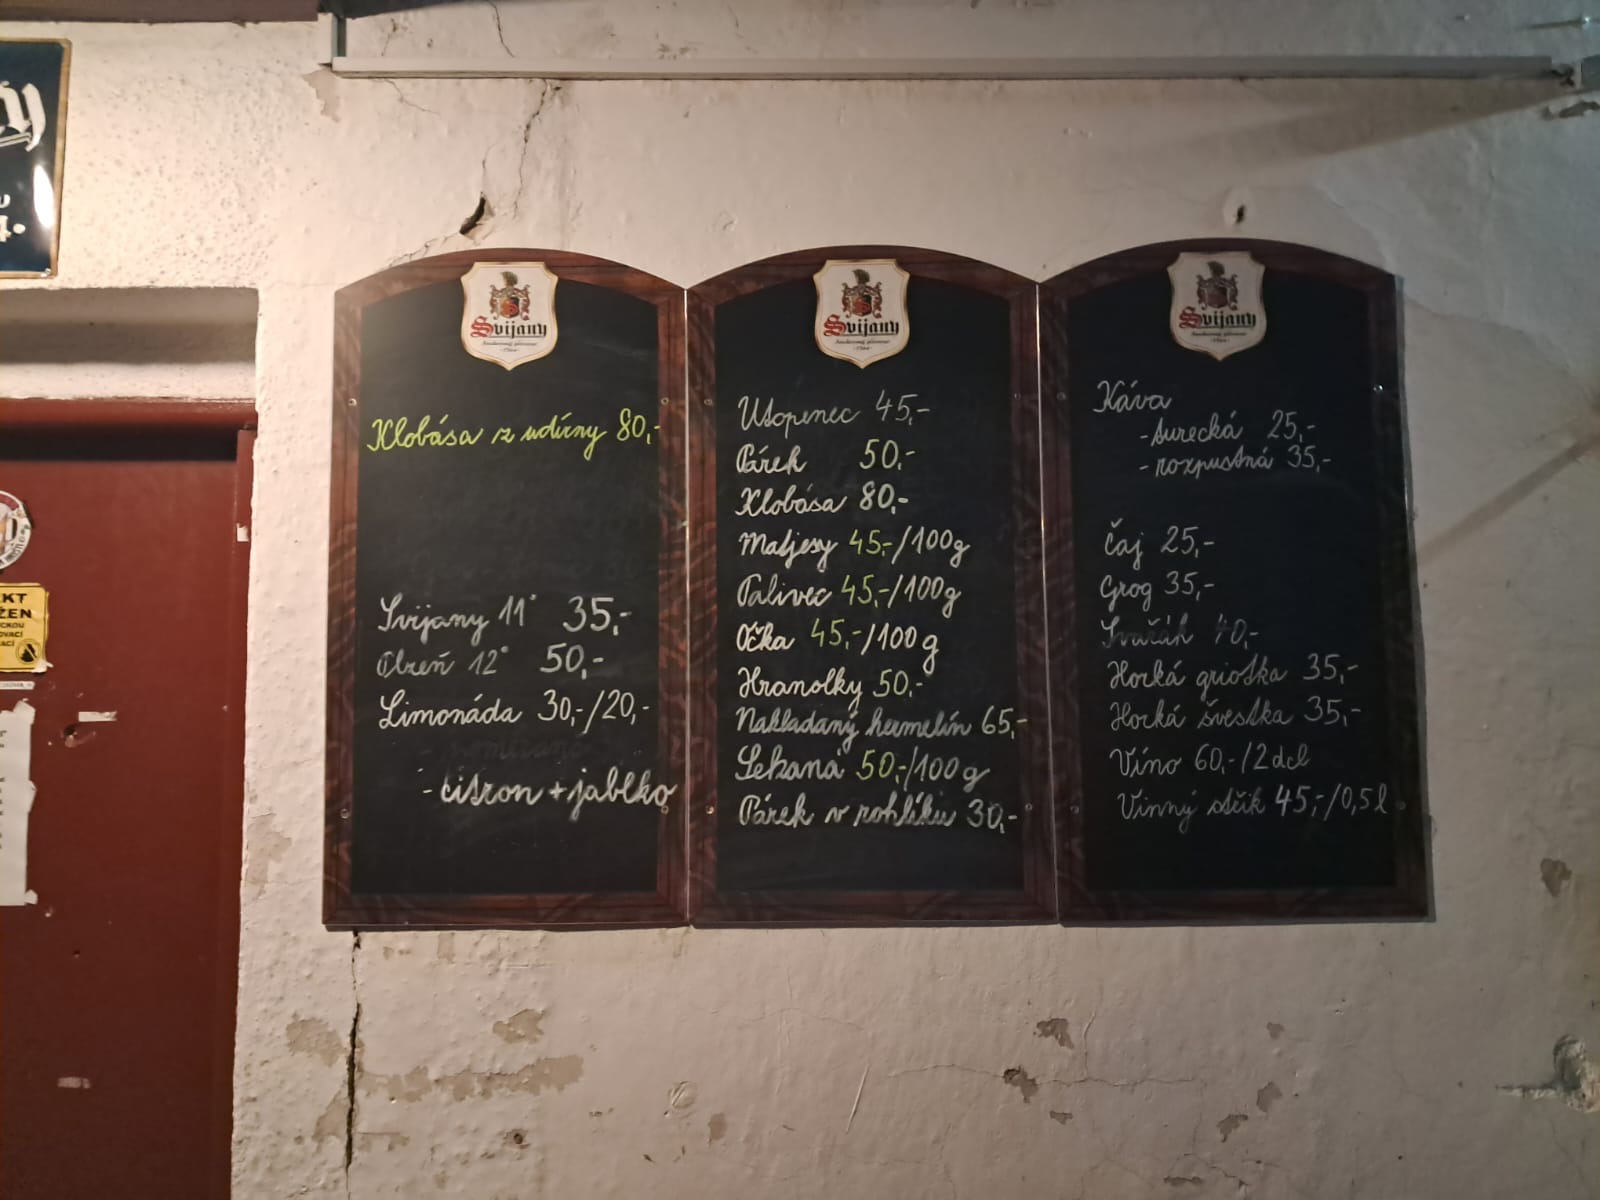 Svijany
Klobása z udírny 80,-
Svijany 11° 35,-
Plzeň 12° 50,-
Limonáda 30,-/20,-
- pomeranč
- citron + jablko
Svijany
Utopenec 45,-
Párek 50,-
Klobása 80,-
Matjesy 45,-/100g
Talivec 45,-/100g
Očka 45,-/100g
Hranolky 50,-
Nakládaný hermelín 65,-
Sekaná 50,-/100g
Párek v rohlíku 30,-
Svijany
Káva
- turecká 25,-
- rozpustná 35,-
Čaj 25,-
Grog 35,-
Svařák 40,-
Horká griotka 35,-
Horká švestka 35,-
Víno 60,-/2dcl
Vinný střik 45,-/0,5l